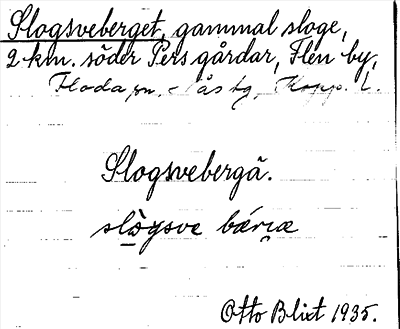 Slogsveberget, gammal sloge,
2 km. söder Pers gårdar, Flen by,
Floda sn. Nås tg, Kopp. l.
Slogsvebergä.
slògsve bǽrıæ
Otto Blixt 1935.